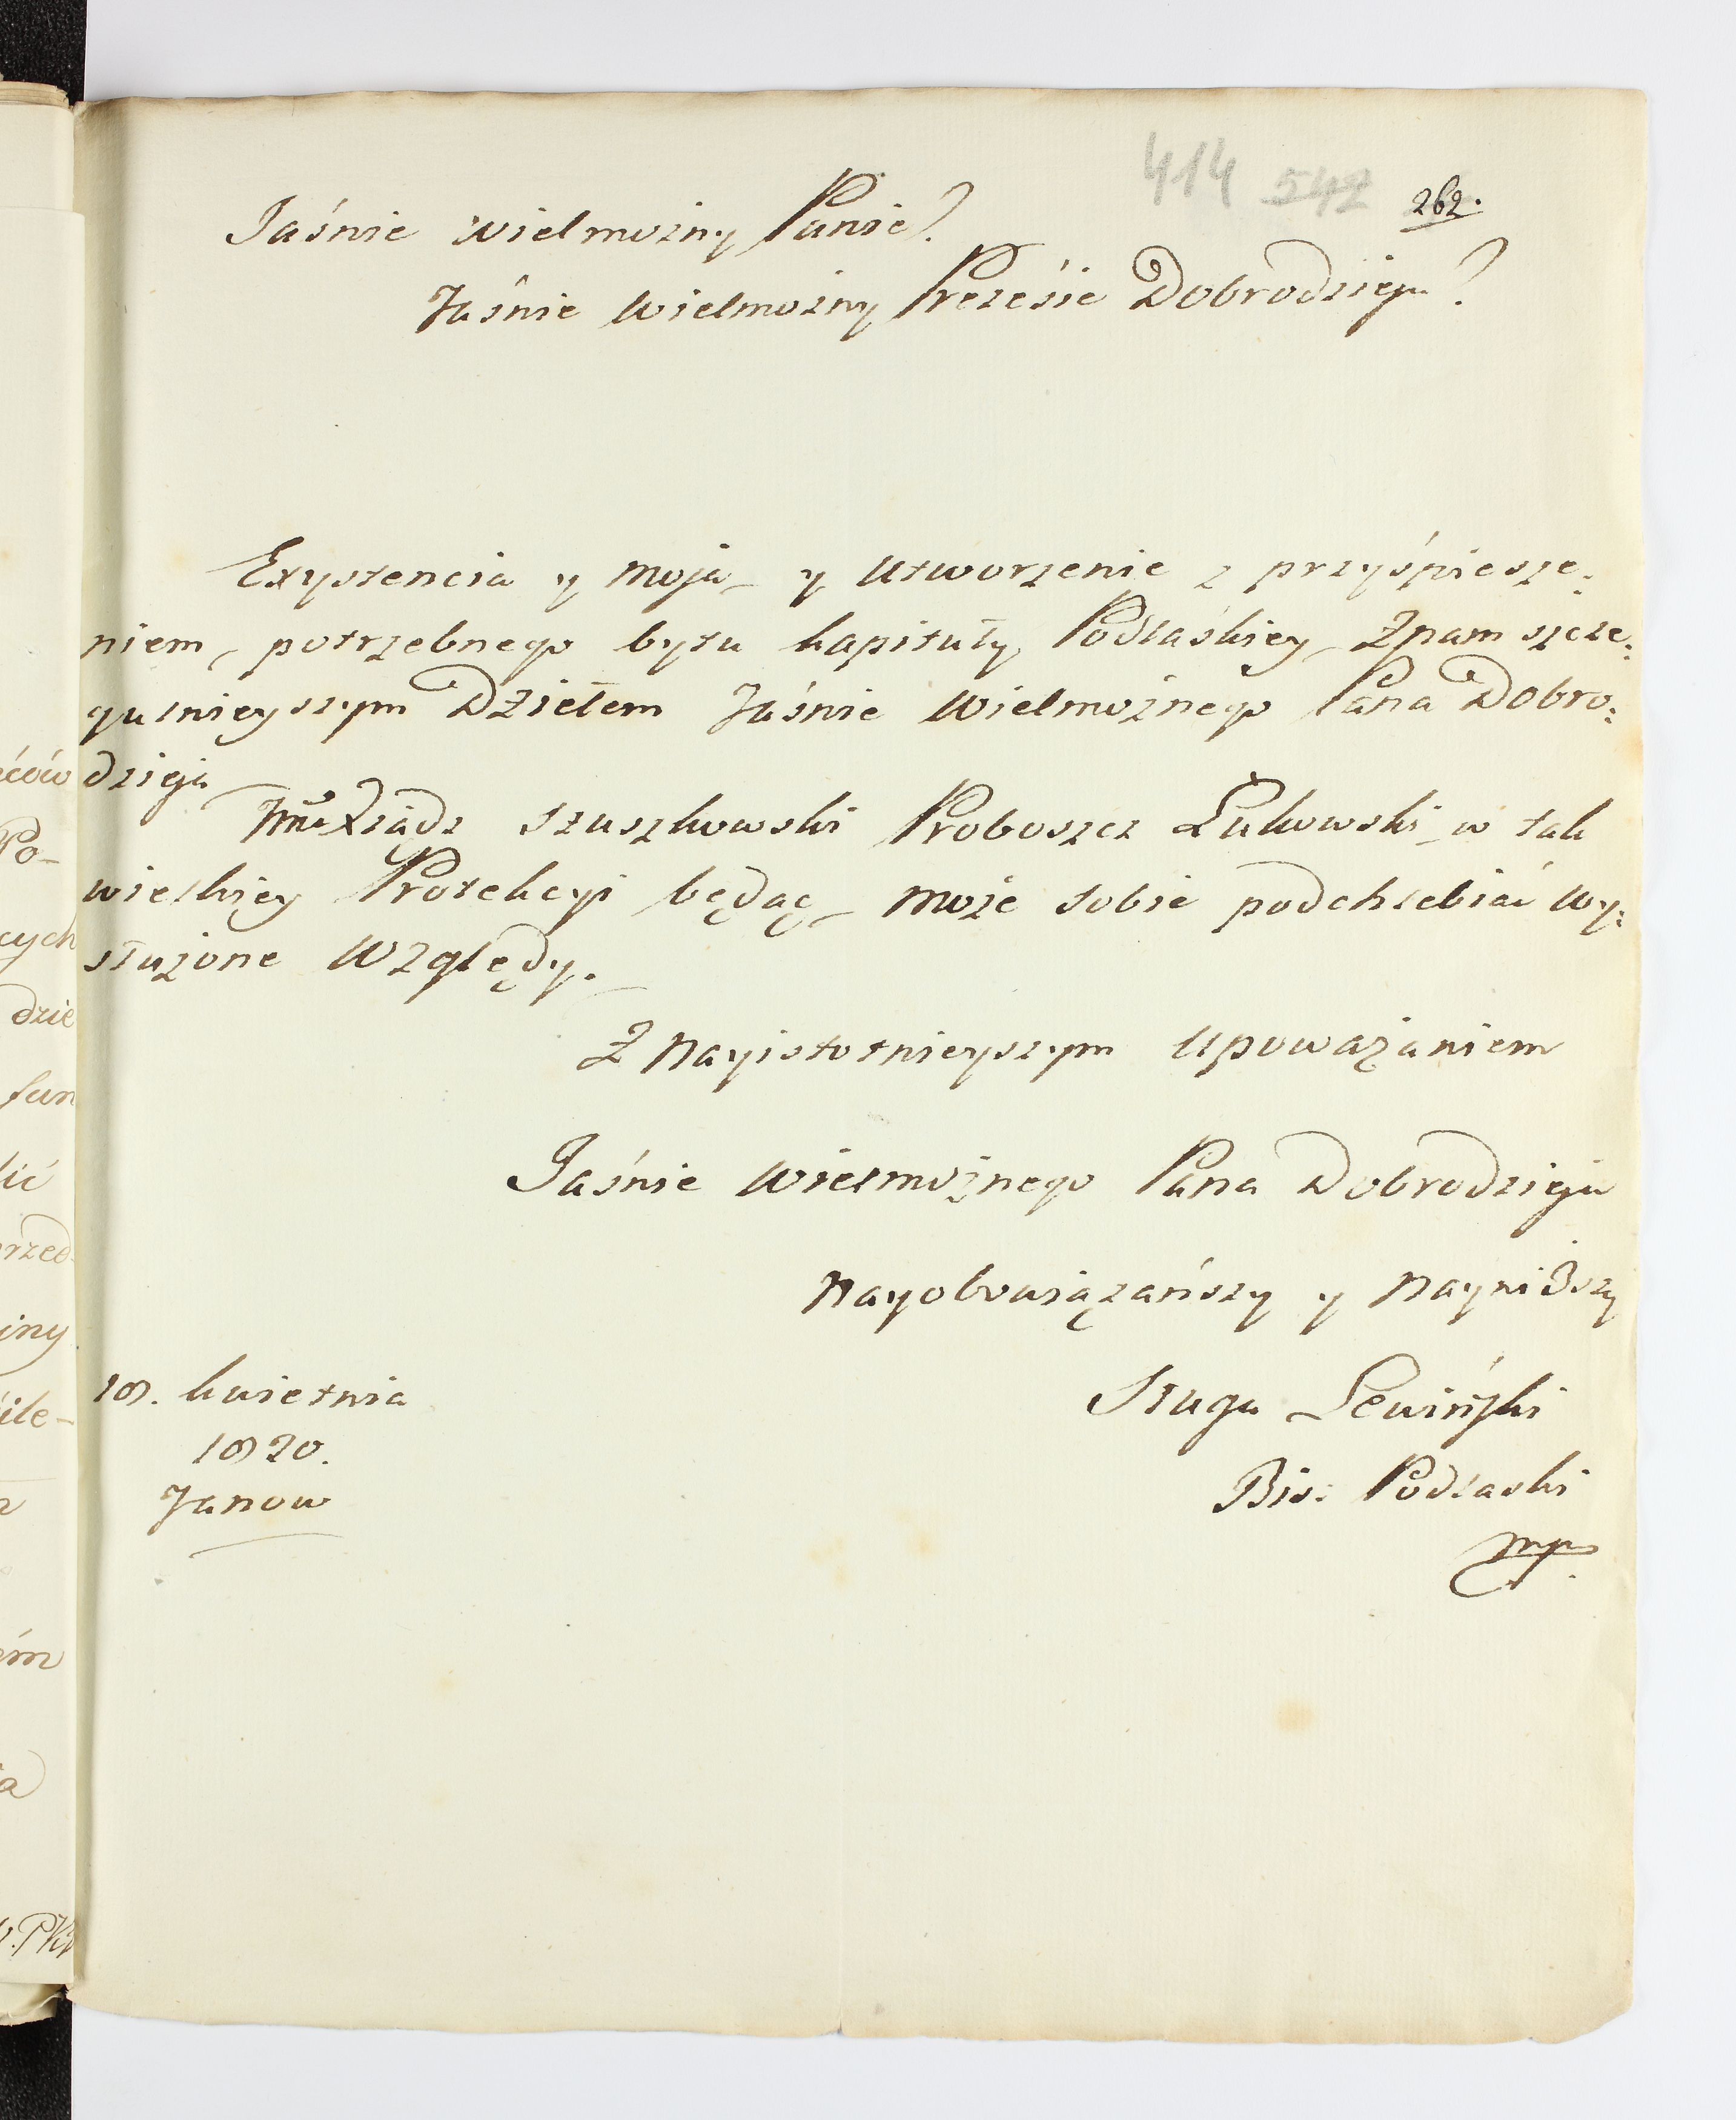 414 547 262.
Jaśnie wielmożny Panie?
Jaśnie Wielmożny Preześie Dobrodzieju?
Exystencia y moja y utworzenie z przyśpiesze:
niem, potrzebnego bytu kapituły Podlaśkiey Znam szcze:
gulnieyszym Dziełem Jaśnie Wielmożnego Pana Dobro:
dzieja
Xiądz Szuszkowski Proboszcz Łukowski w tak
wielkiey Protekcyi będąc moze sobie podchlebiać wy:
służone Względy.
Z Nayistotnieyszym upoważaniem
Jaśnie Wielmożnego Pana Dobrodzieja
Nayobowiązańszy y Nayniższy
18. kwietnia
1820.
Janow
Sługa Lewiński
Bis: Podlaski
mp.